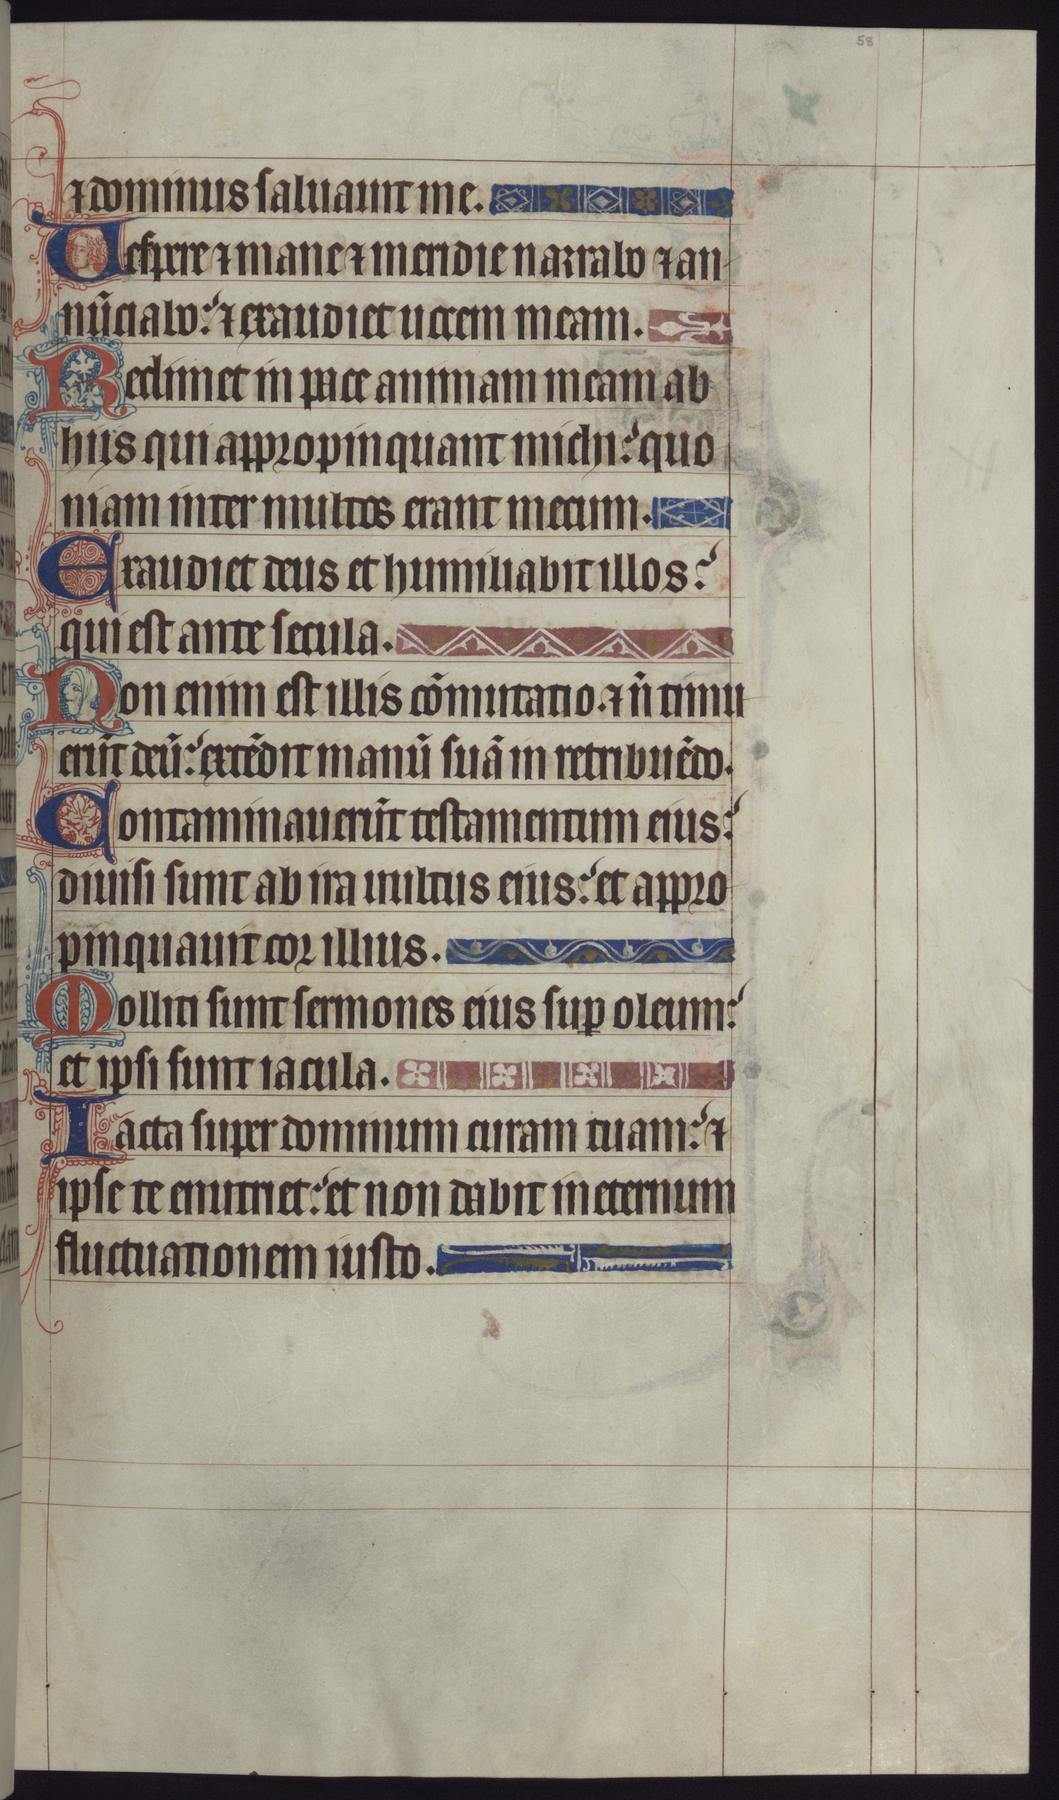 58
⁊ dominus saluauit me.
Uespere ⁊ mane ⁊ meridie narrabo ⁊ an
nūciabo: ⁊ exaudiet uocem meam.
Redimet in pace animam meam ab
hiis qui appropinquant michi: quo
niam inter multos erant mecum.
Exaudiet deus et humiliabit illos:
qui est ante secula.
Non enim est illis cōmutatio. ⁊ ñ timu
erūt deū: extēdit manū suā in retribuēdo.
Contaminauerūt testamentum eius:
diuisi sunt ab ira uultus eius: et appro
pinquauit cor illius.
Molliti sunt sermones eius suꝑ oleum:
et ipsi sunt iacula.
Iacta super dominum curam tuam: ⁊
ipse te enutriet: et non dabit in eternum
fluctuationem iusto.